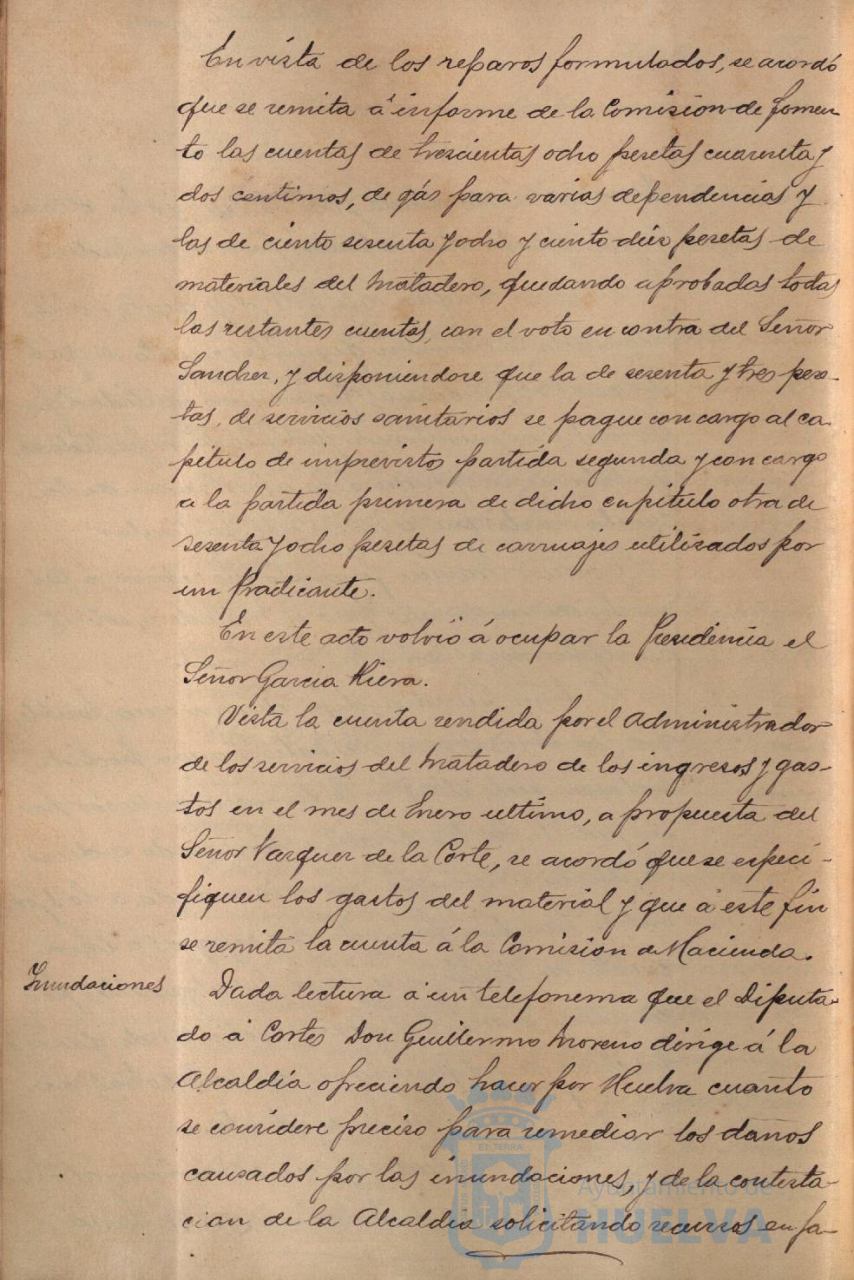 En vista de los reparos formulados, se acordó
que se remita á informe de la Comision de fomen-
to las cuentas de trescientas ocho pesetas cuarenta y
dos centimos, de gás para varias dependencias y
las de ciento sesenta y ocho y ciento diez pesetas de
materiales del Matadero, quedando aprobadas todas
las restantes cuentas, con el voto en contra del Señor
Sanchez, y disponiendose que la de sesenta y tres pese-
tas, de servicios sanitarios se pague con cargo al ca-
pitulo de imprevistos partida segunda y con cargo
a la partida primera de dicho capitulo otra de
sesenta y ocho pesetas de carruajes utilizados por
un Practicante.
En este acto volvió á ocupar la Presidencia el
Señor Garcia Riera.
Vista la cuenta rendida por el Administrador
de los servicios del Matadero de los ingresos y gas-
tos en el mes de Enero ultimo, a propuesta del
Señor Vazquez de la Corte, se acordó que se especi-
fiquen los gastos del material y que á este fin
se remita la cuenta á la Comision de Hacienda.
Inundaciones
Dada lectura á un telefonema que el Diputa-
do á Cortes Don Guillermo Moreno dirige á la
Alcaldía ofreciendo hacer por Huelva cuanto
se considere preciso para remediar los daños
causados por las inundaciones, y de la contesta-
cion de la Alcaldía solicitando recursos en fa-
ET TERRA
Ayuntamiento de
HUELVA